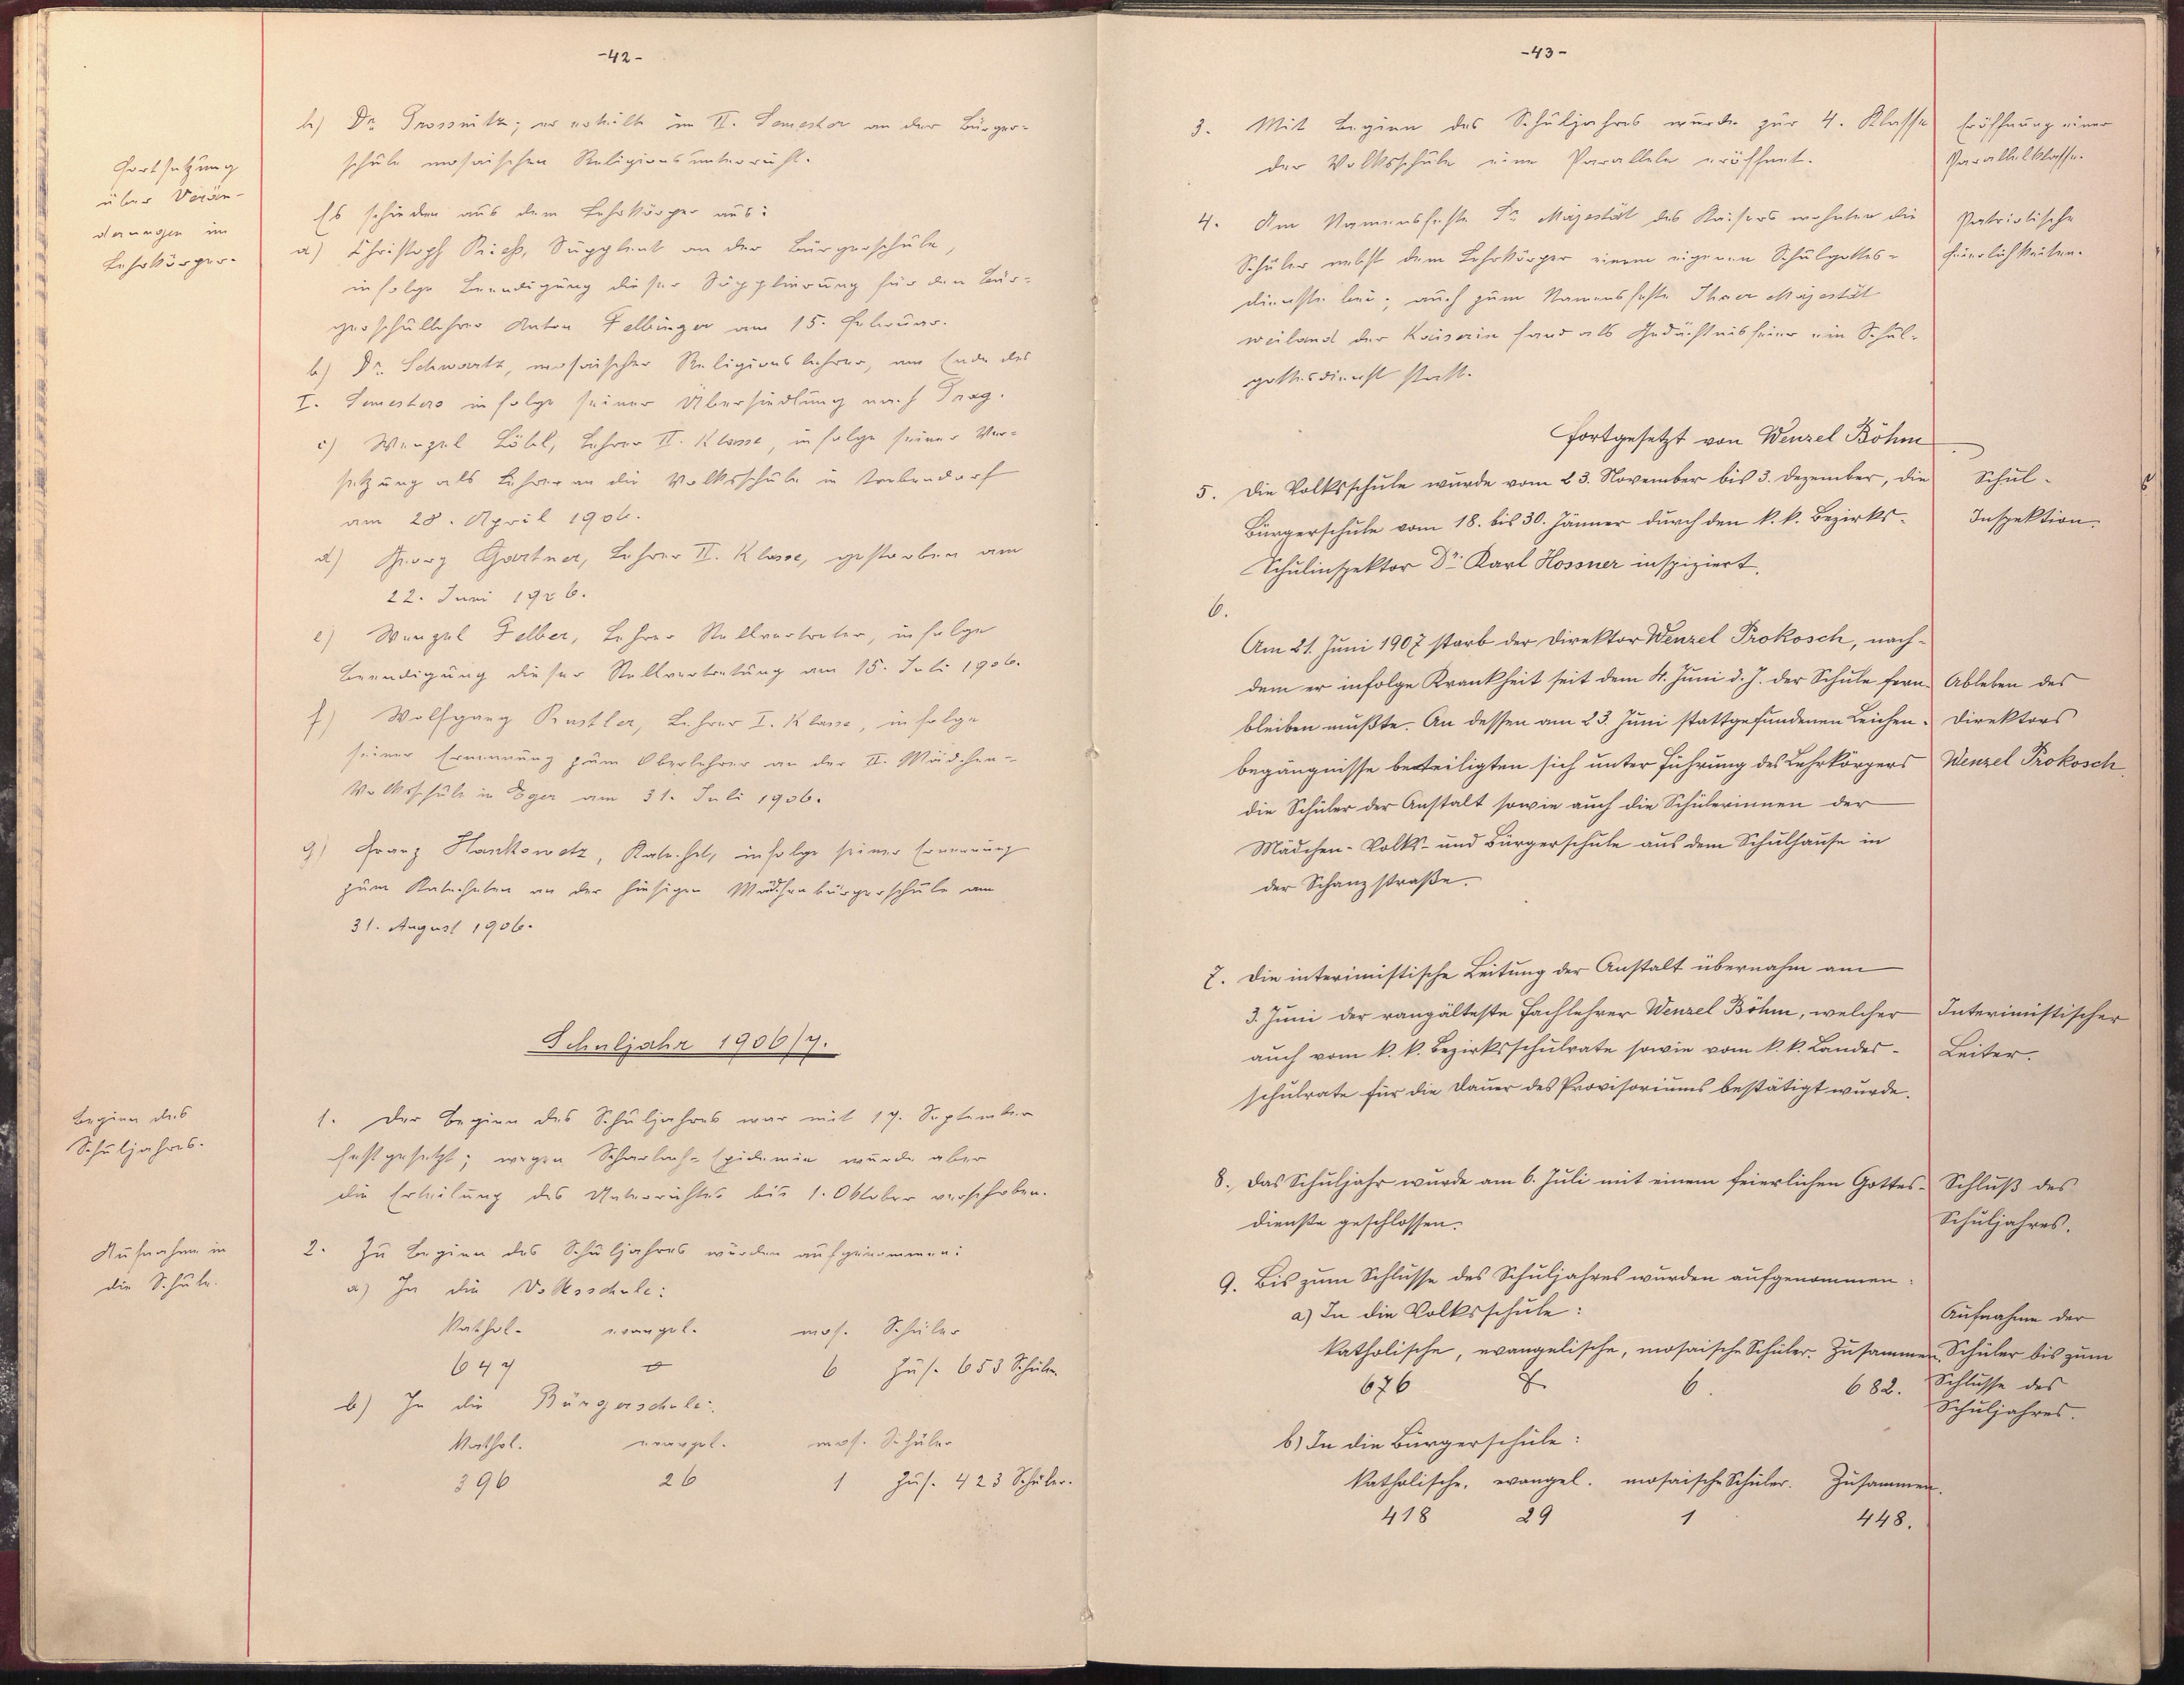 -42-
h) Dr. Prossnitz; er erteilte im II. Semester an der Bürger-
schule mosaischen Religionsunterricht.
Fortsetzung
über Verän-
derungen im
Lehrkörper.
Es schieden aus dem Lehrkörper aus:
a) Christoph Rieß, Supplent an der Bürgerschule,
infolge Beendigung dieser Supplierung für den Bür-
gerschullehrer Anton Felbinger am 15. Februar.
b) Dr. Schwartz, mosaischer Religionslehrer, am Ende des
I. Semesters infolge seiner Übersiedlung nach Prag.
c) Wenzel Löbl, Lehrer II. Klasse, infolge seiner Ver-
setzung als Lehrer an die Volksschule in Trebendorf
am 28. April 1906.
d) Georg Gartner, Lehrer II. Klasse, gestorben am
22. Juni 1906.
e) Wenzel Felber, Lehrer Stellvertreter, infolge
Beendigung dieser Stellvertretung am 15. Juli 1906.
f) Wolfgang Rustler, Lehrer I. Klasse, infolge
seiner Ernennung zum Oberlehrer an der II. Mädchen-
Volksschule in Eger am 31. Juli 1906.
g) Franz Hankowetz, Katechet, infolge seiner Ernennung
zum Katecheten an der hiesigen Mädchenbürgerschule am
31. August 1906.
Schuljahr 1906/7.
Beginn des
Schuljahres.
1. Der Beginn des Schuljahres war mit 17. September
festgesetzt; wegen Scharlach-Epidemie wurde aber
die Erteilung des Unterrichtes bis 1. Oktober verschoben.
Aufnahme in
die Schule.
2. Zu Beginn des Schuljahres wurden aufgenommen:
a) In die Volksschule:
Kathol. evangel. mos. Schüler
647 0 6 Zus. 653 Schüler
b) In die Bürgerschule:
Kathol. evangel. mos. Schüler
396 26 1 Zus. 423 Schüler.
-43-
3. Mit Beginn des Schuljahres wurde zur 4. Klasse
der Volksschule eine Parallele eröffnet.
Eröffnung einer
Parallelklasse.
4. Am Namensfeste Sr. Majestät des Kaisers wohnten die
Schüler nebst dem Lehrkörper einem eigenen Schulgottes-
dienste bei; auch zum Namensfeste Ihrer Majestät
weiland der Kaiserin fand als Gedächtnisfeier ein Schul-
gottesdienst statt.
Patriotische
Feierlichkeiten.
Fortgesetzt von Wenzel Böhm
5. Die Volksschule wurde vom 23. November bis 3. Dezember, die
Bürgerschule vom 18. bis 30. Jänner durch den k. k. Bezirks-
Schulinspektor Dr. Karl Hossner inspiziert.
Schul-
Inspektion.
6.
Am 21. Juni 1907 starb der Direktor Wenzel Prokosch, nach-
dem er infolge Krankheit seit dem 4. Juni d. J. der Schule fern-
bleiben mußte. An dessen am 23. Juni stattgefundenen Leichen-
begängnisse beteiligten sich unter Führung des Lehrkörpers
die Schüler der Anstalt sowie auch die Schülerinnen der
Mädchen-Volks- und Bürgerschule aus dem Schulhause in
der Schanzstraße.
Ableben des
Direktors
Wenzel Prokosch.
7. Die interimistische Leitung der Anstalt übernahm am
3. Juni der rangälteste Fachlehrer Wenzel Böhm, welcher
auch vom k. k. Bezirksschulrate sowie vom k. k. Landes-
schulrate für die Dauer des Provisoriums bestätigt wurde.
Interimistischer
Leiter.
8. Das Schuljahr wurde am 6. Juli mit einem feierlichen Gottes-
dienste geschlossen.
Schluß des
Schuljahres.
9. Bis zum Schlusse des Schuljahres wurden aufgenommen:
a) In die Volksschule:
Katholische, evangelische, mosaische Schüler. Zusammen.
676 6. 682.
Aufnahme der
Schüler bis zum
Schlusse des
Schuljahres.
b) In die Bürgerschule:
Katholische, evangel. mosaische Schüler. Zusammen.
418 29 1 448.